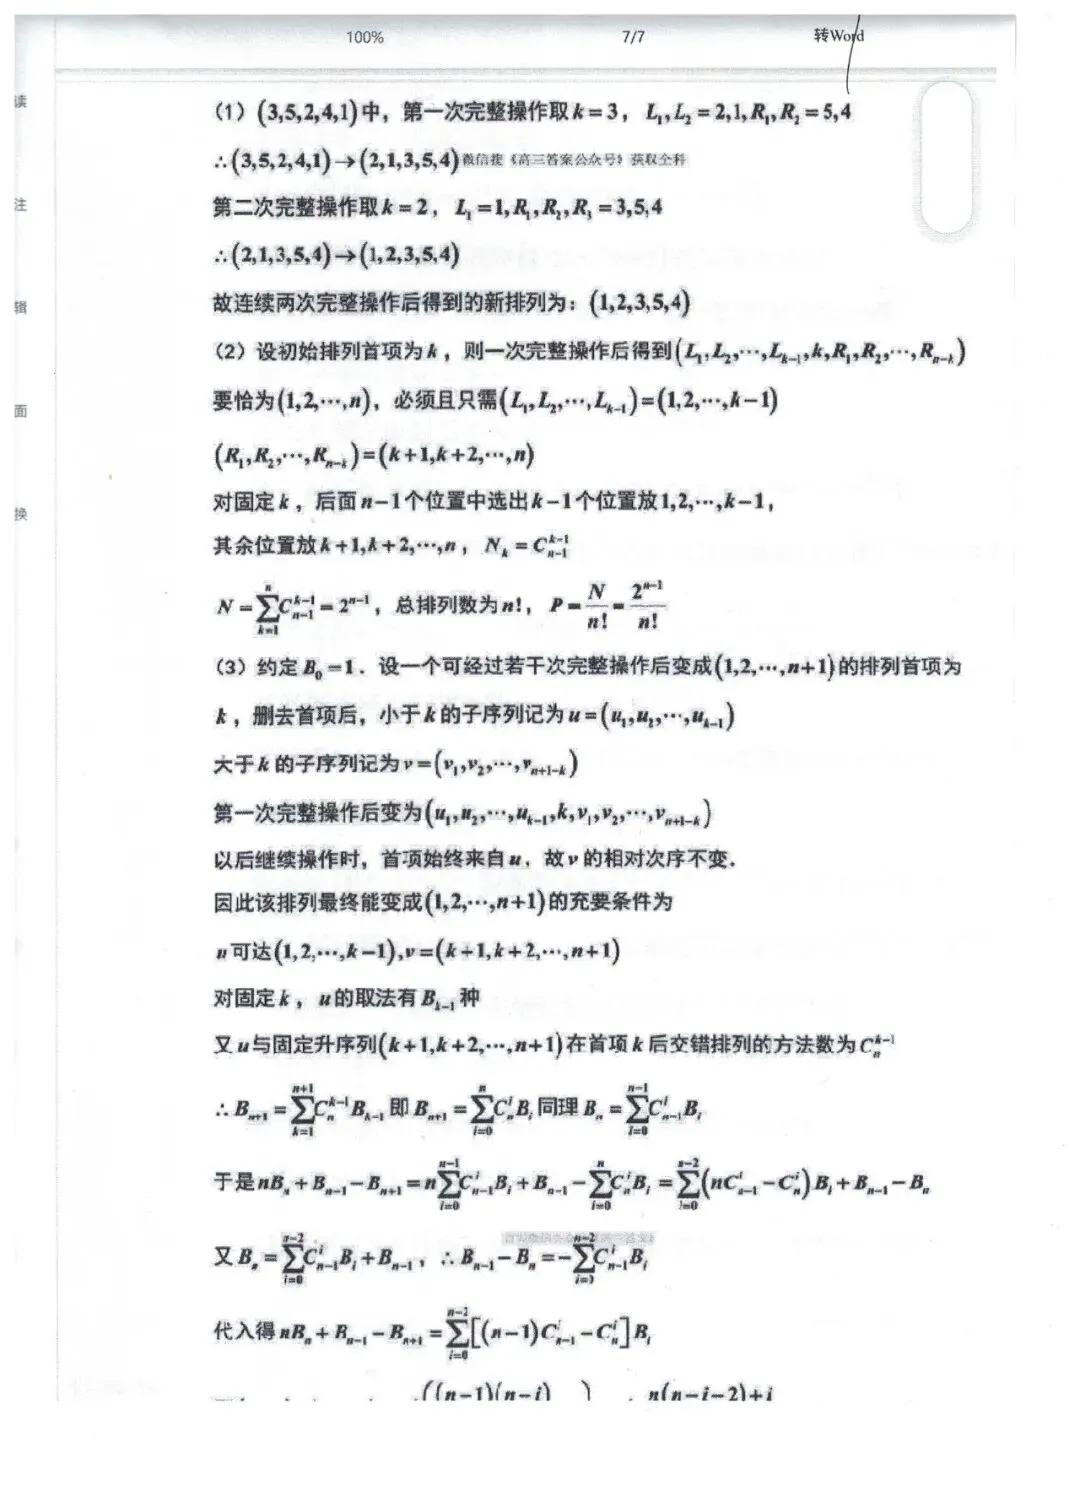 100% 7/7 转Word
读
注
辑
面
换
(1) (3,5,2,4,1)中，第一次完整操作取k=3，L₁,L₂=2,1,R₁,R₂=5,4
∴(3,5,2,4,1)→(2,1,3,5,4)微信搜《高三答案公众号》获取全科
第二次完整操作取k=2，L₁=1,R₁,R₂,R₃=3,5,4
∴(2,1,3,5,4)→(1,2,3,5,4)
故连续两次完整操作后得到的新排列为：(1,2,3,5,4)
(2) 设初始排列首项为k，则一次完整操作后得到(L₁,L₂,⋯,L_{k-1},k,R₁,R₂,⋯,R_{n-k})
要恰为(1,2,⋯,n)，必须且只需(L₁,L₂,⋯,L_{k-1})=(1,2,⋯,k-1)
(R₁,R₂,⋯,R_{n-k})=(k+1,k+2,⋯,n)
对固定k，后面n-1个位置中选出k-1个位置放1,2,⋯,k-1，
其余位置放k+1,k+2,⋯,n，N_k=C_{n-1}^{k-1}
N=∑_{k=1}^{n}C_{n-1}^{k-1}=2^{n-1}，总排列数为n!，P=N/n!=2^{n-1}/n!
(3) 约定B₀=1．设一个可经过若干次完整操作后变成(1,2,⋯,n+1)的排列首项为
k，删去首项后，小于k的子序列记为u=(u₁,u₂,⋯,u_{k-1})
大于k的子序列记为v=(v₁,v₂,⋯,v_{n+1-k})
第一次完整操作后变为(u₁,u₂,⋯,u_{k-1},k,v₁,v₂,⋯,v_{n+1-k})
以后继续操作时，首项始终来自u，故v的相对次序不变．
因此该排列最终能变成(1,2,⋯,n+1)的充要条件为
u可达(1,2,⋯,k-1),v=(k+1,k+2,⋯,n+1)
对固定k，u的取法有B_{k-1}种
又u与固定升序列(k+1,k+2,⋯,n+1)在首项k后交错排列的方法数为C_n^{k-1}
∴B_{n+1}=∑_{k=1}^{n+1}C_n^{k-1}B_{k-1}即B_{n+1}=∑_{i=0}^{n}C_n^iB_i同理B_n=∑_{i=0}^{n-1}C_{n-1}^iB_i
于是nB_n+B_{n-1}-B_{n+1}=n∑_{i=0}^{n-1}C_{n-1}^iB_i+B_{n-1}-∑_{i=0}^{n}C_n^iB_i=∑_{i=0}^{n-2}(nC_{n-1}^i-C_n^i)B_i+B_{n-1}-B_n
又B_n=∑_{i=0}^{n-2}C_{n-1}^iB_i+B_{n-1}，∴B_{n-1}-B_n=-∑_{i=0}^{n-2}C_{n-1}^iB_i
代入得nB_n+B_{n-1}-B_{n+1}=∑_{i=0}^{n-2}[(n-1)C_{n-1}^i-C_n^i]B_i
((n-1)(n-i) ) n(n-i-2)+i